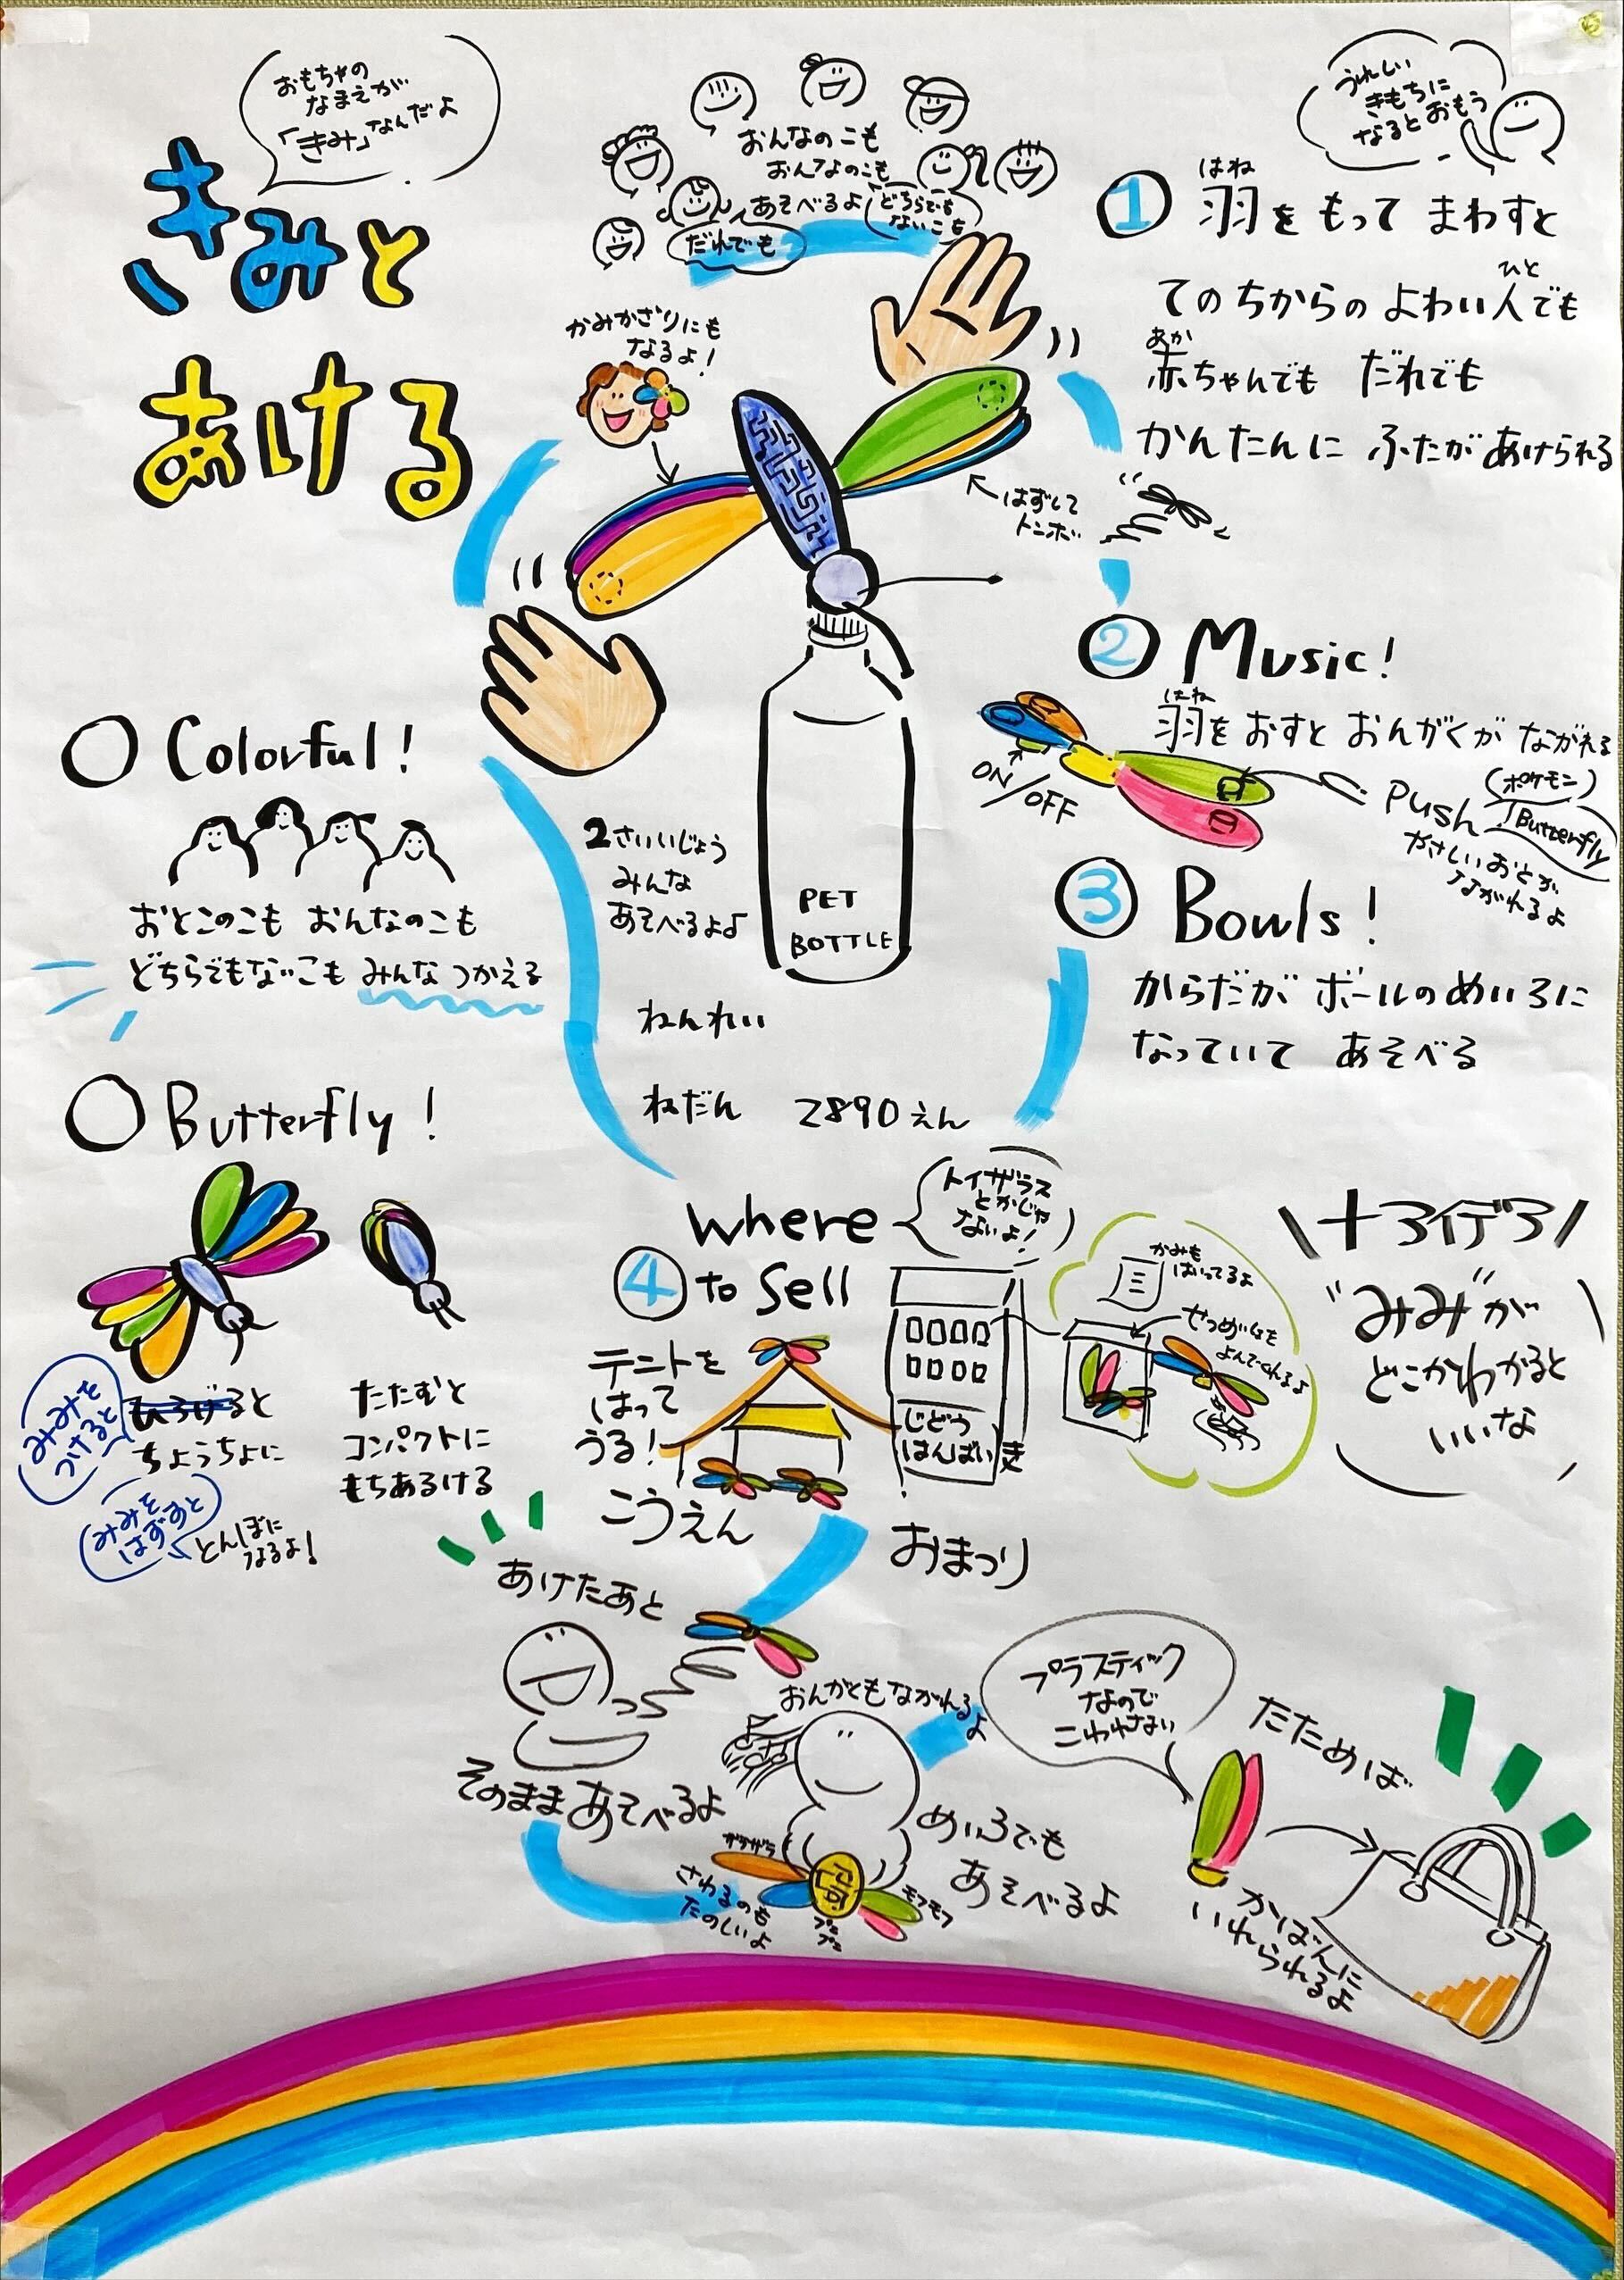 おもちゃの
なまえが
「きみ」なんだよ
きみと
あける
おんなのこも
おんなのこも
あそべるよ
どちらでも
ないこも
だれでも
うれしい
きもちに
なるとおもう
かみかざりにも
なるよ!
はずして
トンボ
① 羽をもってまわすと
はね
てのちからのよわい人でも
ひと
赤ちゃんでも だれでも
あか
かんたんに ふたがあけられる
② Music!
はね
羽をおすと おんがくが ながれる
ON/OFF
Push!
(ポケモン)
Butterfly
やさしいおとが
ながれるよ
③ Bowls!
からだがボールのめいろに
なっていて あそべる
○ Colorful!
おとこのこも おんなのこも
どちらでもないこも みんなつかえる
2さいいじょう
みんな
あそべるよ♪
PET
BOTTLE
ねんれい
ねだん 2890えん
○ Butterfly!
みみを
つけると
ちょうちょに
みみを
はずすと
とんぼに
なるよ!
たたむと
コンパクトに
もちあるける
where
④ to Sell
トイザラス
とかじゃ
ないよ!
テントを
はって
うる!
こうえん
じどう
はんばいき
おまつり
かみも
はいってるよ
せつめいしょも
よんでくれるよ
"みみ"が
どこかわかると
いいな
あけたあと
そのままあそべるよ
おんがくもながれるよ
ガラガラ
さわるのも
たのしいよ
モフモフ
めいろでも
あそべるよ
プラスティック
なので
こわれない
たためば
かばんに
いれられるよ